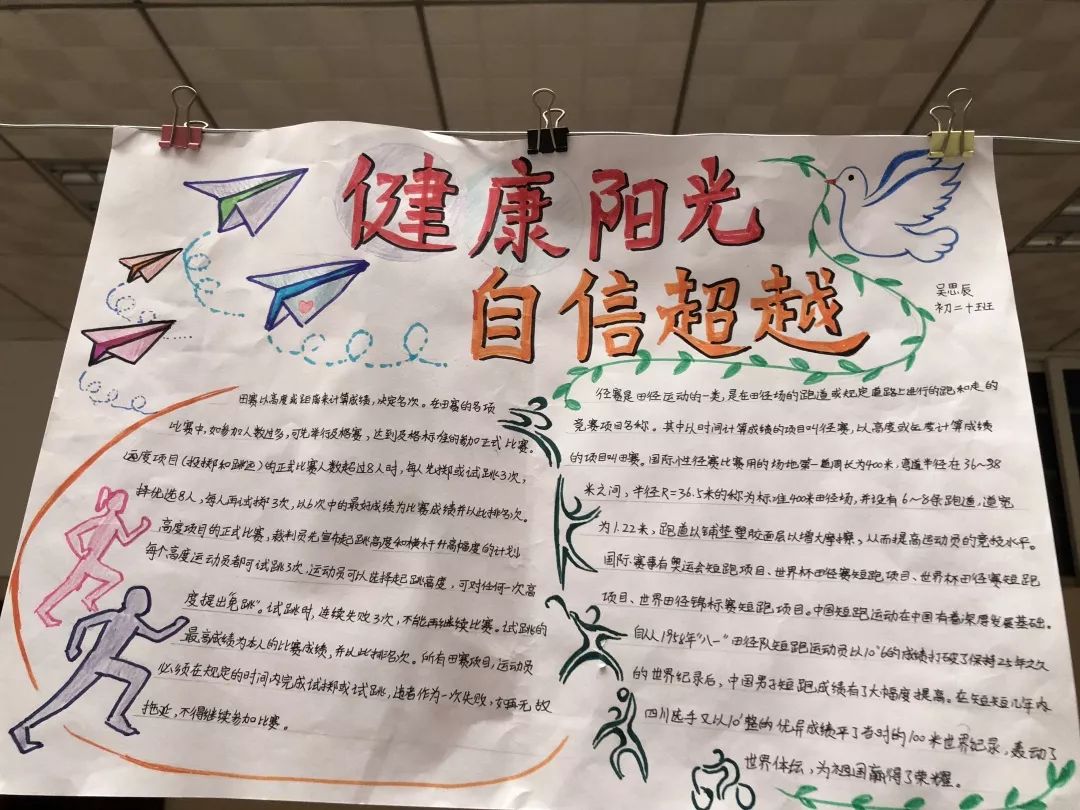 健康阳光
自信超越
吴思辰
初二十五班
田赛以高度或距离来计算成绩，决定名次。在田赛的各项
比赛中，如参加人数过多，可先举行及格赛，达到及格标准的参加正式比赛。
远度项目(投掷和跳远)的正式比赛人数超过8人时，每人先掷或试跳3次，
择优选8人，每人再试掷3次，以6次中的最好成绩为比赛成绩并以此排名次。
高度项目的正式比赛，裁判员先宣布起跳高度和横杆升高幅度的计划
每个高度运动员都可试跳3次，运动员可以选择起跳高度，可对任何一次高
度提出"免跳"。试跳时，连续失败3次，不能再继续比赛。试跳的
最高成绩为本人的比赛成绩，并以此排名次。所有田赛项目，运动员
必须在规定的时间内完成试掷或试跳，违者作为一次失败，如再无故
拖延，不得继续参加比赛。
径赛是田径运动的一类，是在田径场的跑道或规定道路上进行的跑和走的
竞赛项目名称。其中以时间计算成绩的项目叫径赛，以高度或长度计算成绩
的项目叫田赛。国际性径赛比赛用的场地第一道周长为400米，弯道半径在36~38
米之间，半径R=36.5米的称为标准400米田径场，并设有6~8条跑道，道宽
为1.22米，跑道以铺垫塑胶面层以增大摩擦，从而提高运动员的竞技水平。
国际赛事有奥运会短跑项目、世界杯田径赛短跑项目、世界杯田径赛短跑
项目、世界田径锦标赛短跑项目。中国短跑运动在中国有着深厚发展基础。
自从1958年"八一"田径队短跑运动员以10"6的成绩打破了保持25年之久
的世界纪录后，中国男子短跑成绩有了大幅度提高。在短短几年内
四川选手又以10"整的优异成绩平了当时的100米世界纪录，轰动了
世界体坛，为祖国赢得了荣耀。